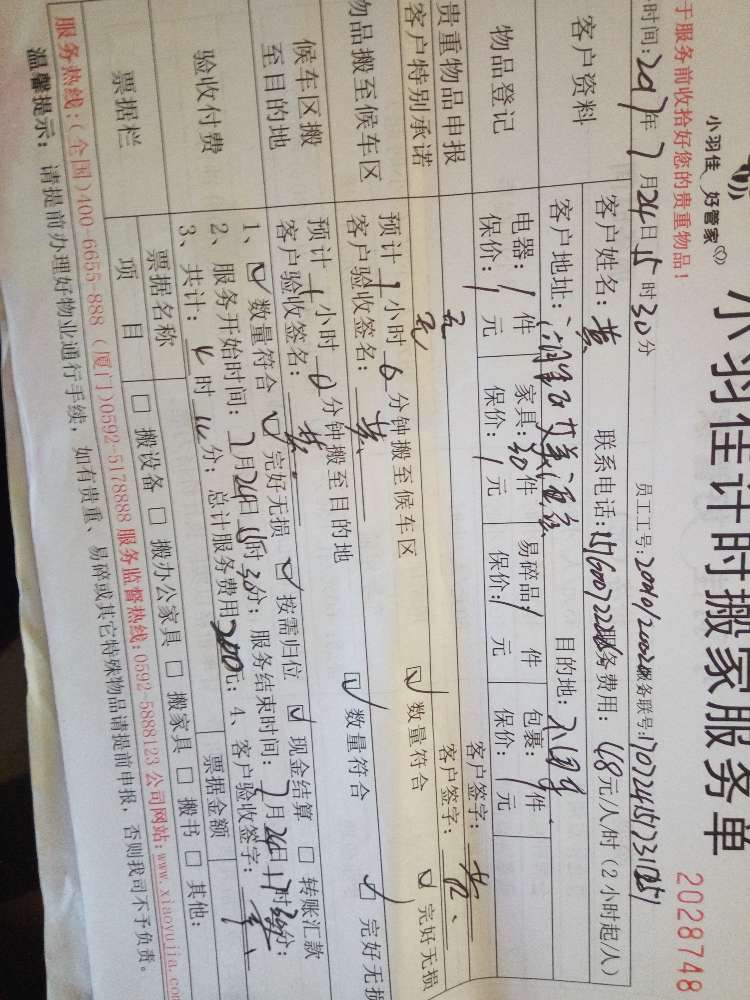 小羽佳 好管家
小羽佳计时搬家服务单
2028748
于服务前收拾好您的贵重物品!
时间:2017年7月24日15时30分 员工工号: 服务联号:
客户资料
客户姓名:黄 联系电话: 服务费用:48元/人/时(2小时起/人)
客户地址: 目的地:
物品登记
电器:/件 家具:30件 易碎品:/件 包裹:/件
保价:/元 保价:/元 保价:/元 保价:/元
贵重物品申报
无 客户签字:黄
客户特别承诺
无 客户签字:
物品搬至候车区
预计1小时0分钟搬至候车区 ☑ 数量符合 ☑ 完好无损
客户验收签名:黄
候车区搬至目的地
预计1小时0分钟搬至目的地 ☑ 数量符合 ☑ 完好无损
客户验收签名:黄
验收付费
1、☑ 数量符合 ☑ 完好无损 ☑ 按需归位 ☑ 现金结算 □ 转账汇款
2、服务开始时间:7月24日15时30分;服务结束时间:7月24日17时30分;
3、共计: 时 分;总计服务费用200元;4、客户验收签字:
票据栏
票据名称 票据金额
项目 □ 搬设备 □ 搬办公家具 □ 搬家具 □ 搬书 □ 其他:
服务热线:(全国)400-6655-888 (厦门)0592-5178888 服务监督热线:0592-5888123 公司网站:www.xiaoyujia.com
温馨提示: 请提前办理好物业通行手续,如有贵重、易碎或其它特殊物品请提前申报,否则我司不予负责。